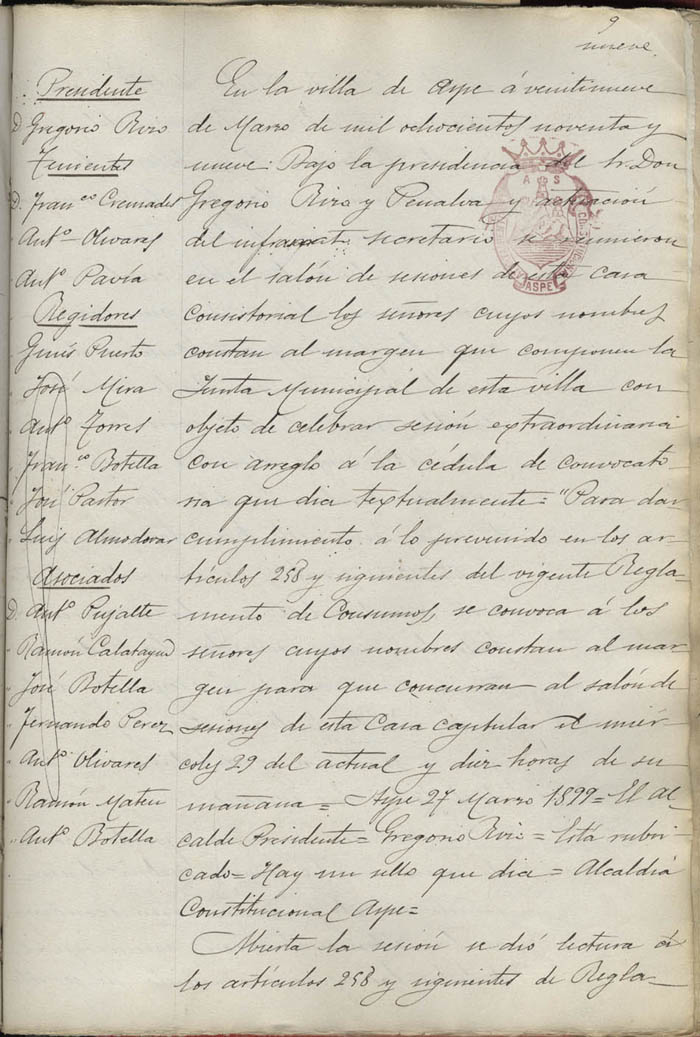 9
nueve.
Presidente
D. Gregorio Rizo
Tenientes
D. Fran.co Cremades
" Ant.o Olivares
" Ant.o Pavía
Regidores
Ginés Puerto
" José Mira
" Ant.o Torres
" Fran.co Botella
" José Pastor
" Luis Almodovar
Asociados
D. Ant.o Pujalte
" Ramón Calatayud
" José Botella
" Fernando Perez
" Ant.o Olivares
" Ramón Mateu
" Ant.o Botella
En la villa de Aspe á veintinueve
de Marzo de mil ochocientos noventa y
nueve: Bajo la presidencia del Sr. Don
Gregorio Rizo y Penalva y actuación
del infrascrito secretario se reunieron
en el salón de sesiones de esta casa
Consistorial los señores cuyos nombres
constan al margen que componen la
Junta Municipal de esta villa con
objeto de celebrar sesión extraordinaria
con arreglo á la cédula de convocato
ria que dia textualmente = "Para dar
cumplimiento á lo prevenido en los ar-
tículos 258 y siguientes del vigente Regla-
mento de Consumos, se convoca á los
señores cuyos nombres constan al mar
gen para que concurran al salón de
sesiones de esta Casa Capitular el miér
coles 29 del actual y diez horas de su
mañana = Aspe 27 Marzo 1899 = El Al
calde Presidente = Gregorio Rizo = Está rubri
cado = Hay un sello que dia = Alcaldía
Constitucional Aspe =
Abierta la sesión se dió lectura á
los artículos 258 y siguientes de Regla-
A S
ASPE